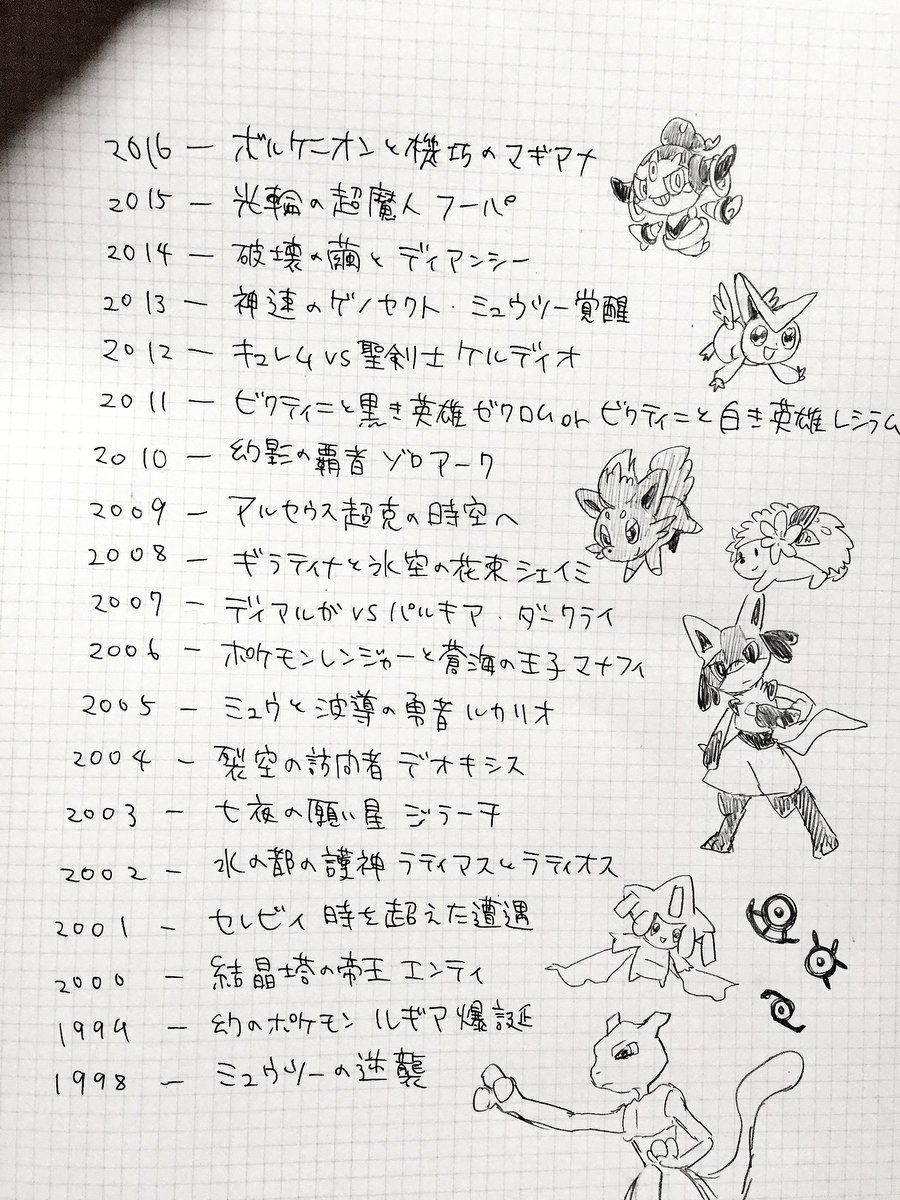 2016 ー ボルケニオンと機巧のマギアナ
2015 ー 光輪の超魔人 フーパ
2014 ー 破壊の繭と ディアンシー
2013 ー 神速のゲノセクト・ミュウツー覚醒
2012 ー キュレムvs聖剣士 ケルディオ
2011 ー ビクティニと黒き英雄 ゼクロムor ビクティニと白き英雄 レシラム
2010 ー 幻影の覇者 ゾロアーク
2009 ー アルセウス超克の時空へ
2008 ー ギラティナと氷空の花束 シェイミ
2007 ー ディアルガvsパルキア・ダークライ
2006 ー ポケモンレンジャーと蒼海の王子 マナフィ
2005 ー ミュウと波導の勇者 ルカリオ
2004 ー 裂空の訪問者 デオキシス
2003 ー 七夜の願い星 ジラーチ
2002 ー 水の都の護神 ラティアスとラティオス
2001 ー セレビィ 時を超えた遭遇
2000 ー 結晶塔の帝王 エンティ
1999 ー 幻のポケモン ルギア爆誕
1998 ー ミュウツーの逆襲